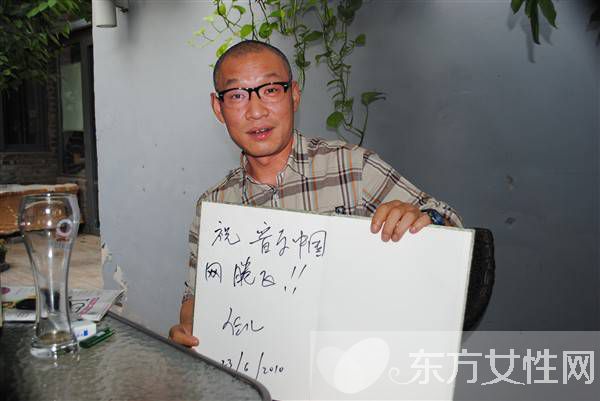 祝 音乐中国
网 腾飞!!
23/6/2010
东方女性网